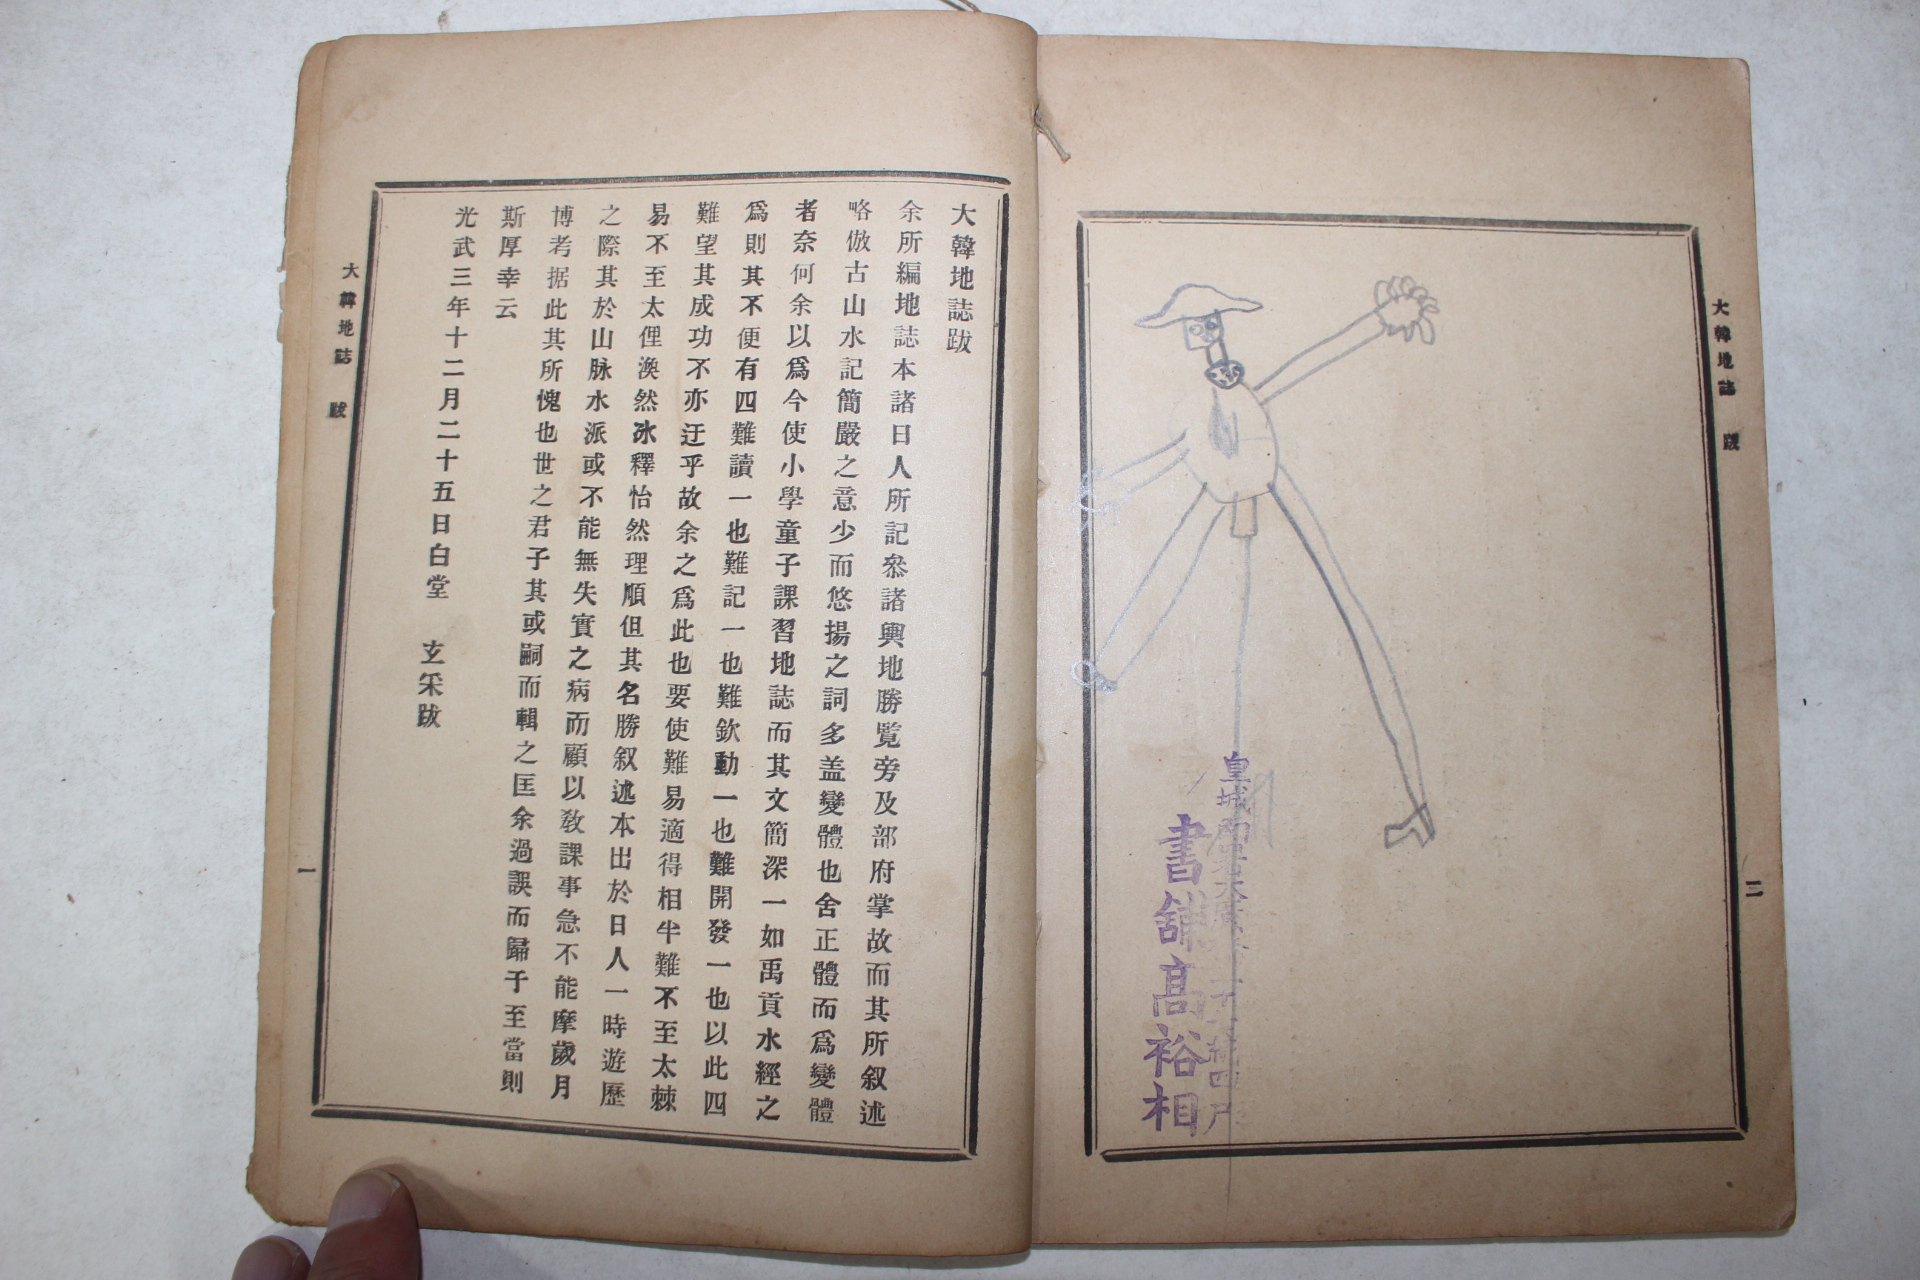 大韓地誌跋
余所編地誌本諸日人所記叅諸輿地勝覽旁及部府掌故而其所叙述
略倣古山水記簡嚴之意少而悠揚之詞多盖變體也舍正體而爲變體
者奈何余以爲今使小學童子課習地誌而其文簡深一如禹貢水經之
爲則其不便有四難讀一也難記一也難欽動一也難開發一也以此四
難望其成功不亦迂乎故余之爲此也要使難易適得相半難不至太棘
易不至太俚渙然氷釋怡然理順但其名勝叙述本出於日人一時遊歷
之際其於山脉水派或不能無失實之病而顧以敎課事急不能摩歲月
博考据此其所愧也世之君子其或嗣而輯之匡余過誤而歸于至當則
斯厚幸云
光武三年十二月二十五日白堂 玄采跋
大韓地誌 跋
一
大韓地誌 跋
二
皇城南署大 統四戶
書舖高裕相